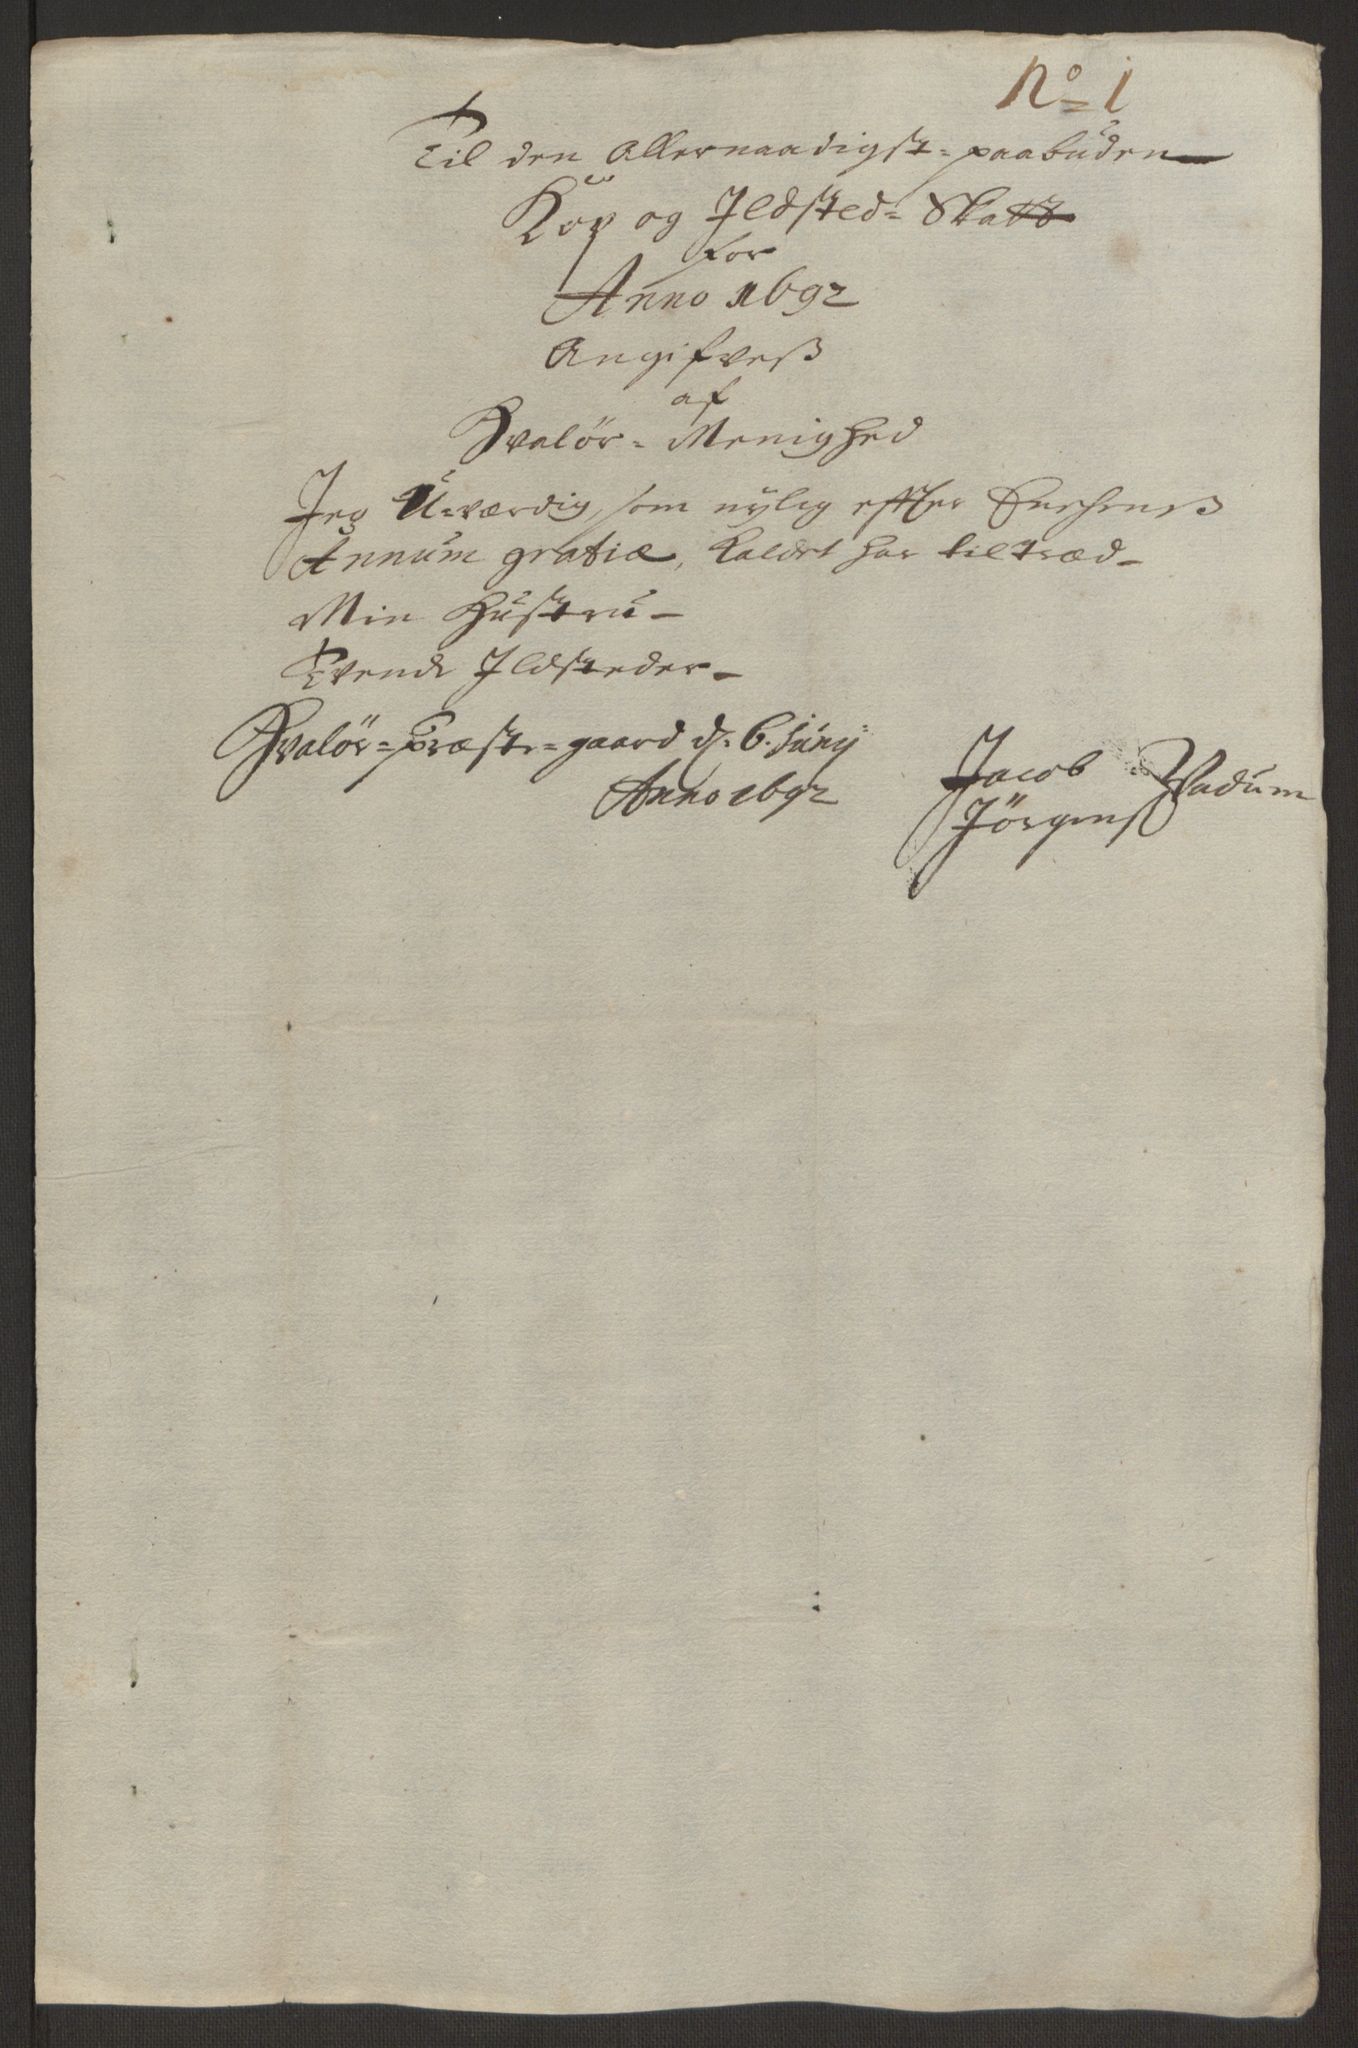 No 1
Til den Allernaadigst-paabudene
Kop og Ildsted-Skatt
for
Anno 1692
Angifveß
af
Hvalör-Menighed
Jeg U-værdig, som nylig effter Enchens
Annum gratiæ, Kaldet har tiltræd-
Min Hustru-
Tvende Ildsteder-
Hvalör-Præste-gaard d. 6. Junij
Anno 1692
Jacob Wadum
Jörgens